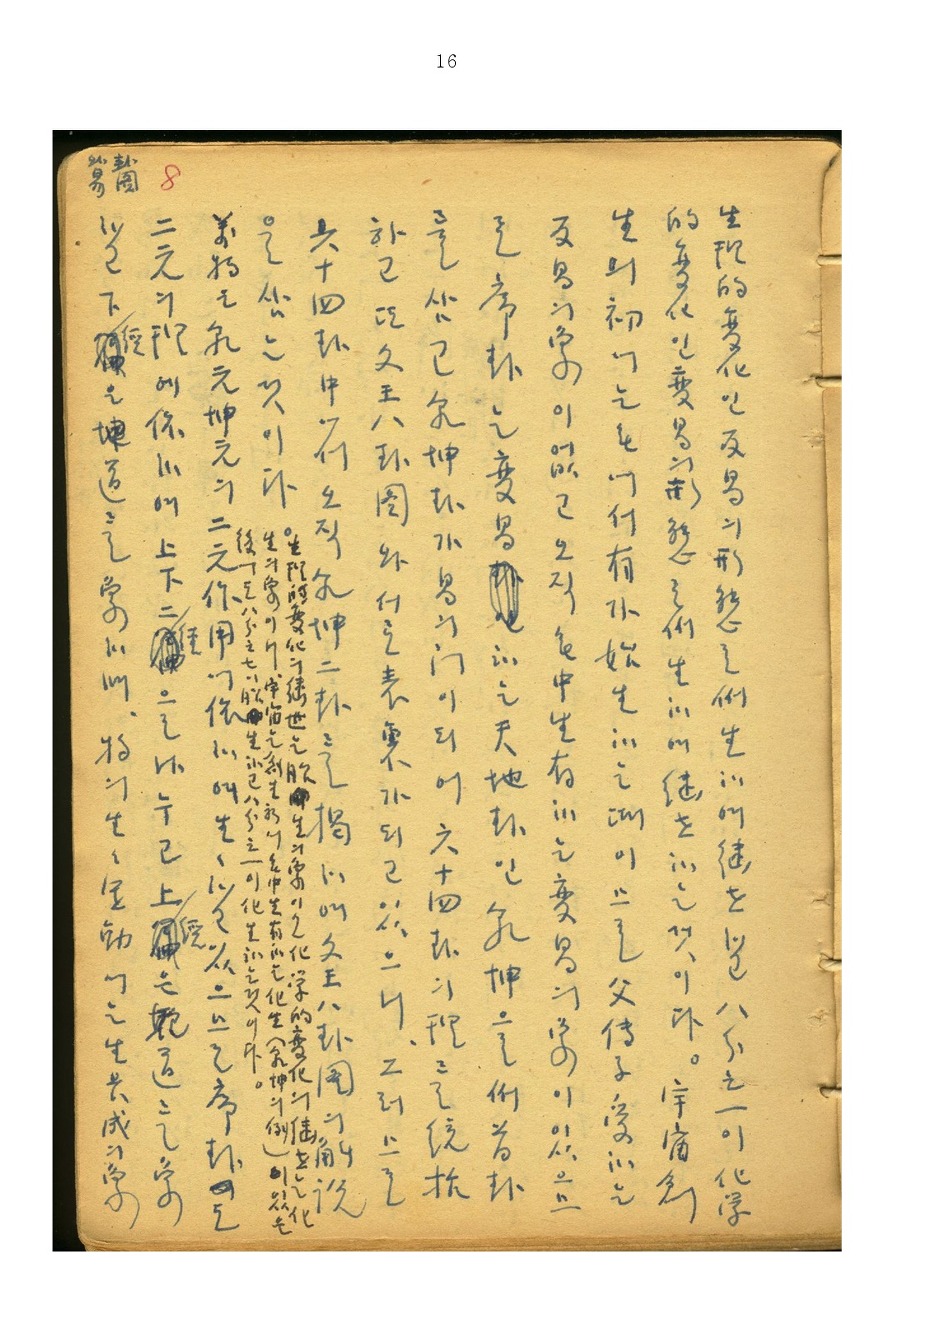 16
卦圖
8
生理的變化인 反易의 形態로 卵生하며 繼世할 八分之一이 化學
的變化인 變易의 形態로 卵生하며 繼世하는것이다。宇宙創
生의 初에는 無에서 有가 始生하는 때이므로 父傳子受하는
反易의 象이 없고 오직 無中生有하는 變易의 象이 있으므
로 序卦는 變易 하는 天地卦인 乾坤으로 首卦
를 삼고 乾坤卦가 易의 门이되어 六十四卦의 理를 統括
하고 또 文王八卦圖와 서로 表裏가되고 있으니、그러므로
六十四卦中에서 오직 乾坤二卦를 揭하여 文王八卦圖의 角 說
을 삼는것이다
。生理的變化의 繼世는 胎 生의 象이오 化學的變化의 繼世는 化
生의 象이니 宇宙는 創生初에 無中生有하는 化生(乾坤의 例)이 있은
後에는 八分之七이 胎 生하고 八分之一이 化生하는것이다。
萬物은 乾元坤元의 二元作用에 依하여 生生하고 있으므로 序卦 도
二元의 理에 依하여 上下二經으로 나누고 上經은 乾道를 象
하고 下經은 坤道를 象하며、物의 生生運動에는 生長成의 象